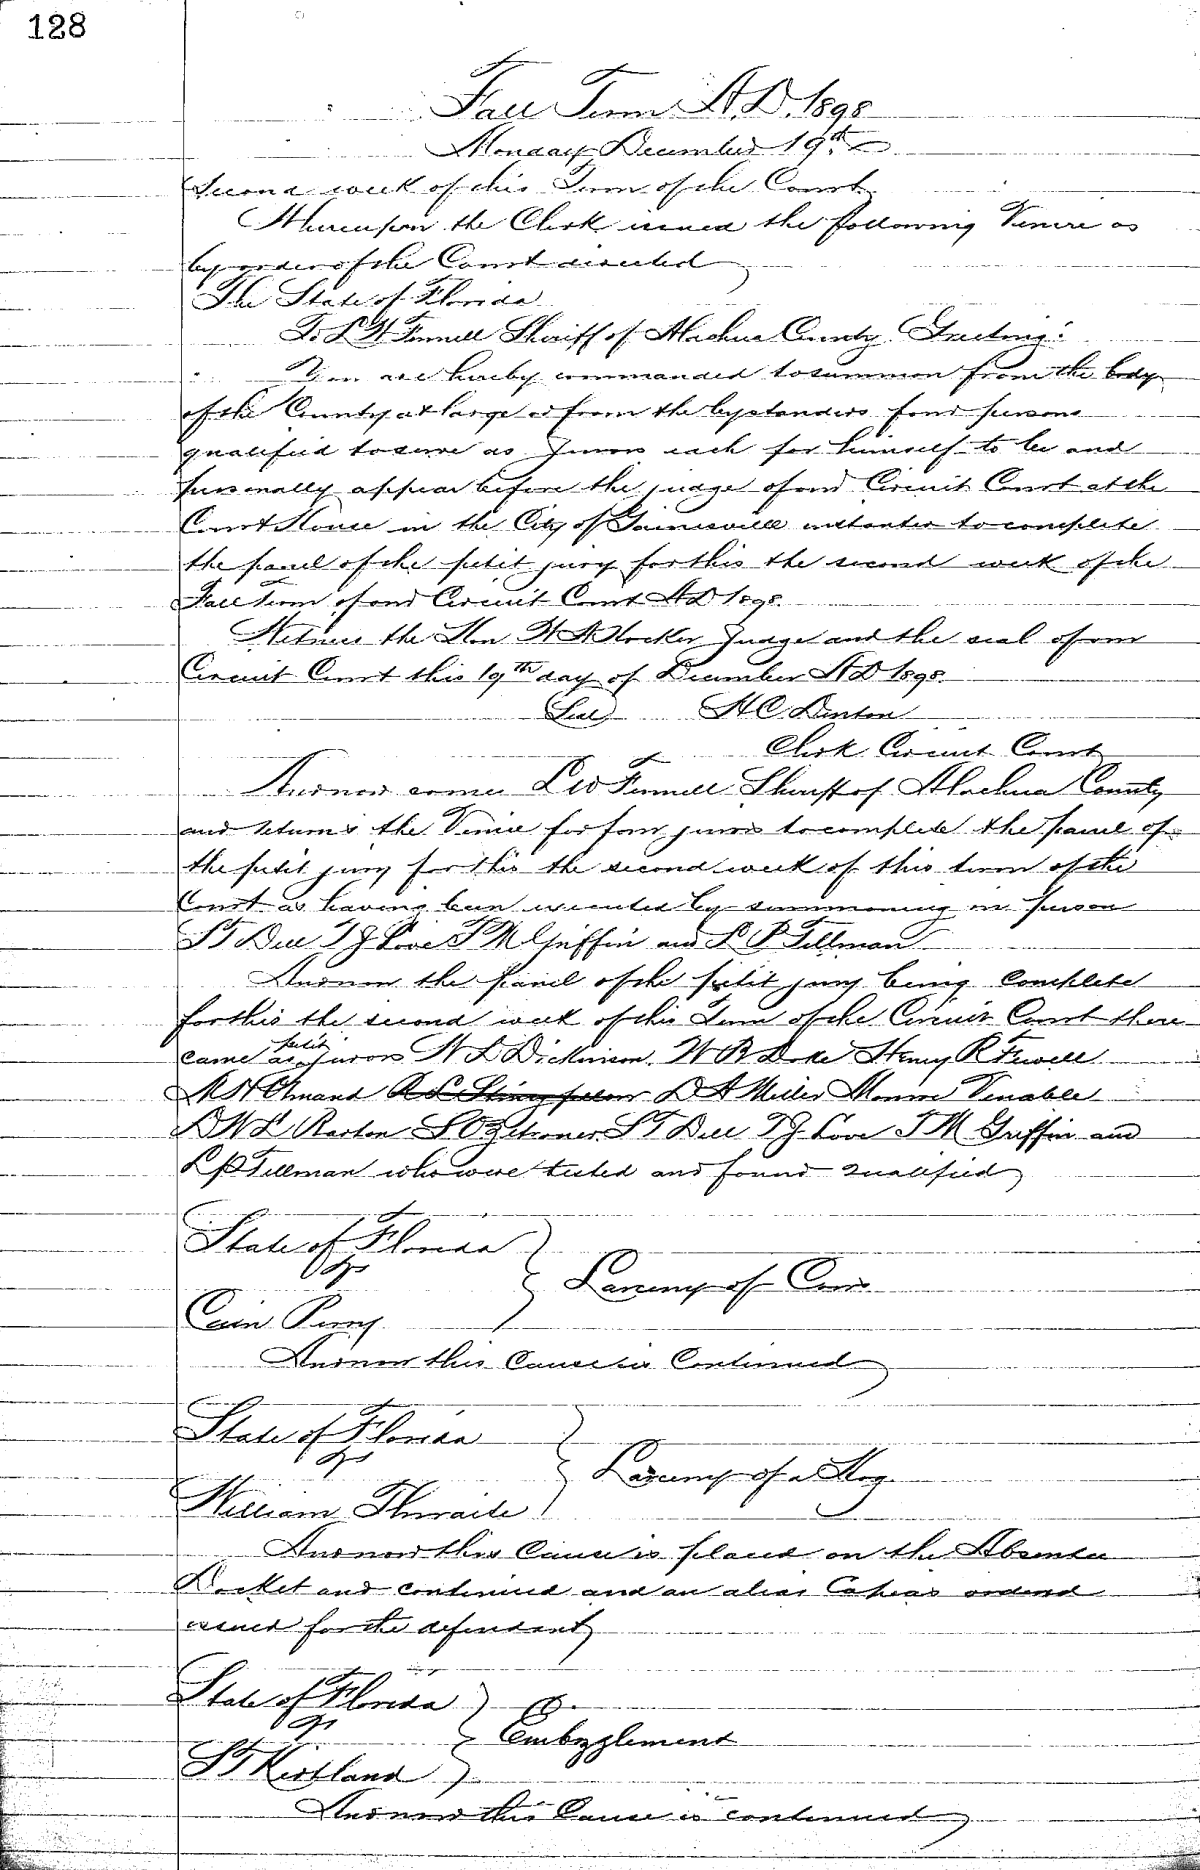 128
Fall Term A.D. 1898
Monday December 19th
Second week of this Term of the Court
Whereupon the Clerk issued the following Venire as
by order of the Court directed
The State of Florida
To L W Fennell Sheriff of Alachua County Greeting:
You are hereby commanded to summon from the body
of the County at large or from the bystanders four persons
qualified to serve as Jurors each for himself to be and
personally appear before the judge of our Circuit Court at the
Court House in the City of Gainesville instanter to complete
the panel of the petit jury for this the second week of the
Fall Term of our Circuit Court AD 1898.
Witness the Hon W A Hocker Judge and the seal of our
Circuit Court this 19th day of December AD 1898.
(Seal) H C Denton
Clerk Circuit Court
And now comes L W Fennell Sheriff of Alachua County
and returns the Venire for four jurors to complete the panel of
the petit jury for this the second week of this term of the
Court as having been executed by summoning in person
S T Dell T J Pove T M Griffin and L P Tillman
And now the panel of the petit jury being complete
for this the second week of this Term of the Circuit Court there
came as petit jurors W L Dickinson W R Doke Henry R Fewell
M H Omand D A Miller Monroe Venable
D W L Barton S O Zetrouer S T Dell T J Pove T M Griffin and
L P Tillman who were tested and found qualified
State of Florida
vs
Larceny of Cow
Cain Perry
And now this Cause is Continued
State of Florida
vs
Larceny of a Hog
William Thwaite
And now this Cause is placed on the Absentee
Docket and continued and an alias Capias ordered
issued for the defendant
State of Florida
vs
Embezzlement
S T Kirtland
And now this Cause is continued